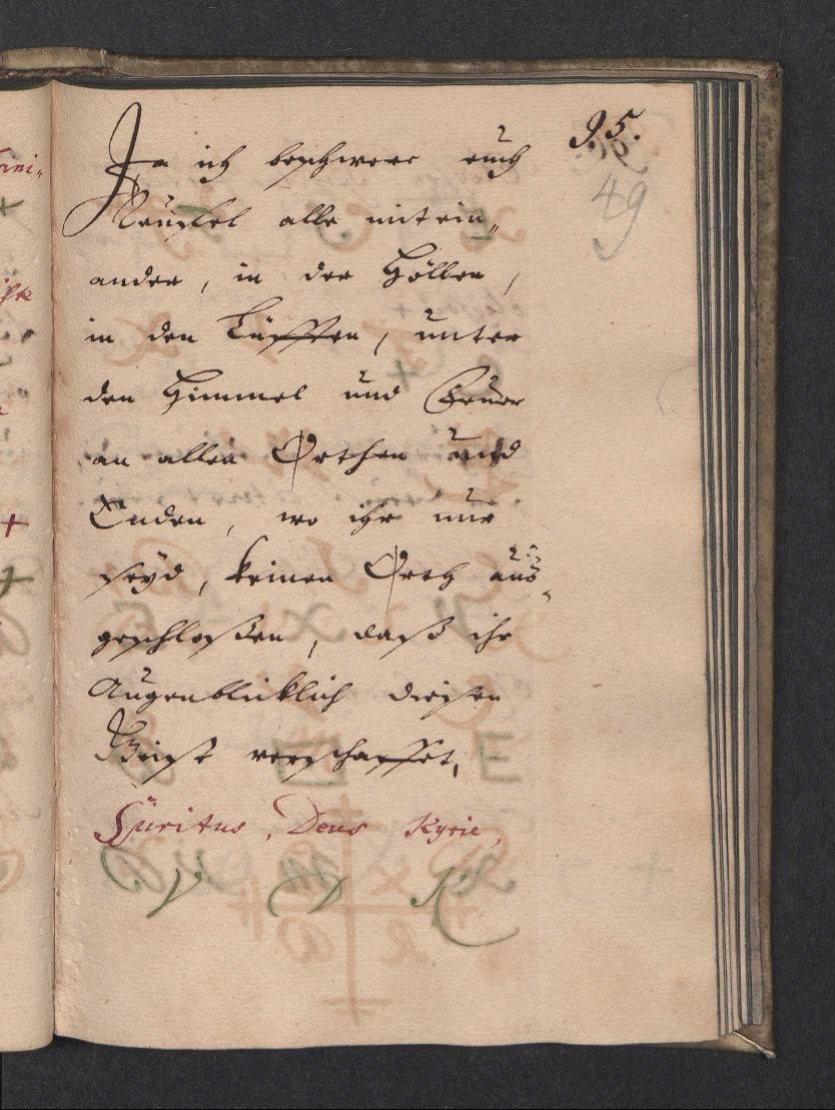 95.
49
Ja ich beschwere euch
Teüffel alle mitein„
ander, in der Höllen,
in den Lüfften, unter
den Himmel und
an allen Orthen und
Enden, wo ihr nur
seyd, keinen Orth aus„
geschloßen, daß ihr
Augenblicklich diesen
Geist verschaffet,
Spiritus, Deus Kyrie,